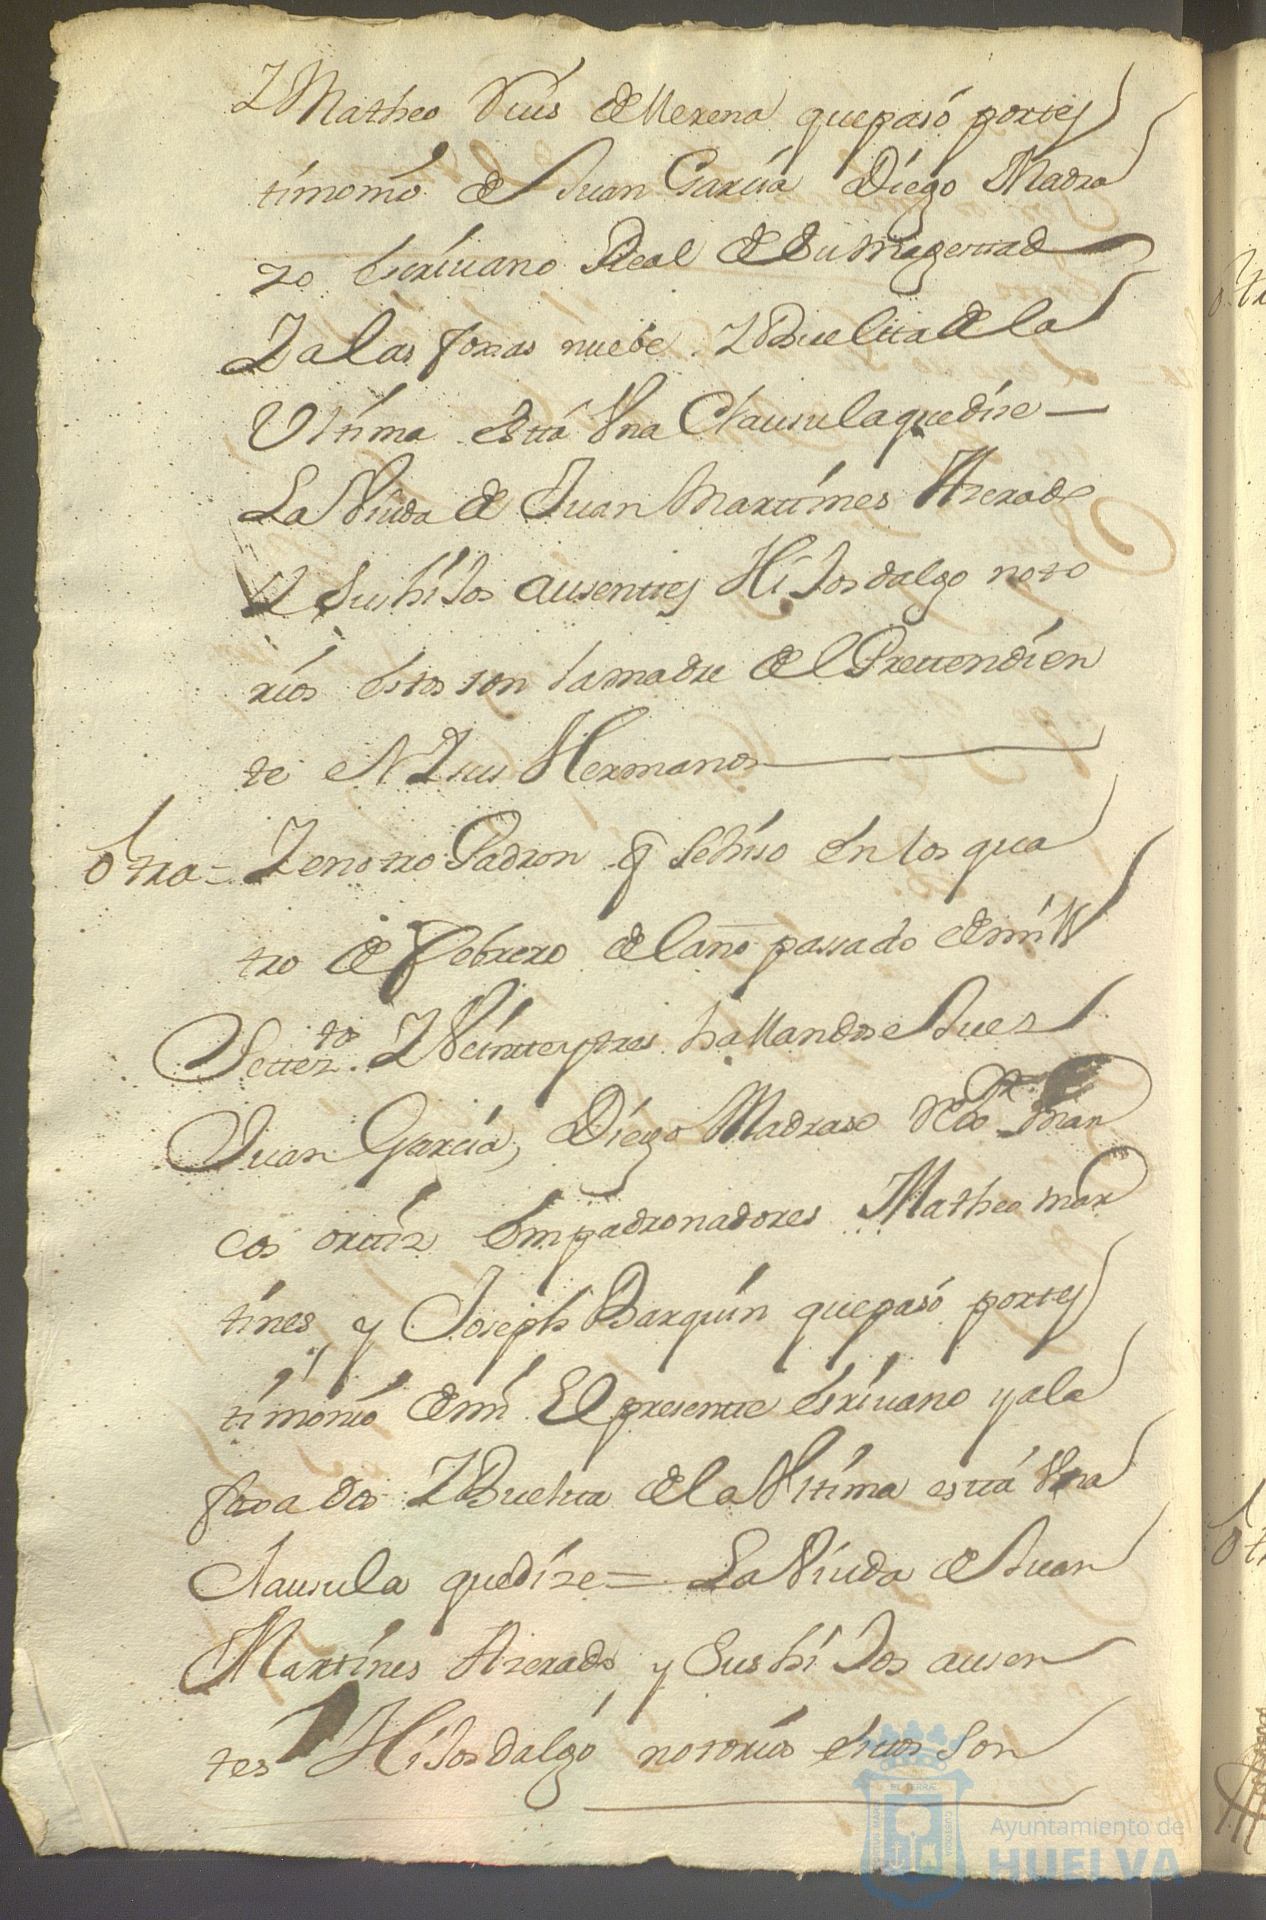 Y Matheo Ruis de Llerena que pasó por tes
timonio de Juan García Diego Madra
zo Escriuano Real de Su Magestad
Y a las foxas nuebe Y Buelta de la
Vltima está Vna Clausula que dise —
La Viuda de Juan Martines Azerado
Y Sus hiJos ausentes HiJosdalgo noto
rios estos son la madre de el Prettendien
te Y Sus Hermanos
Otra = Y en otro Padron q Se hiso en los qua
tro de Febrero de el año passado de mill
Settez.tos Y Veintte y tres hallandose Jues
Juan García, Diego Madraso Mar
cos ortiz Empadronadores Matheo mar
tines, y Joseph Barquín que pasó por tes
timonio de mi El presente escriuano y a la
foxa dos Y Buelta de la Vltima está Vna
Clausula que dize = La Viuda de Juan
Martines Azerado, y Sus hiJos ausen
tes HiJosdalgo notorios estos son
Ayuntamiento de
HUELVA